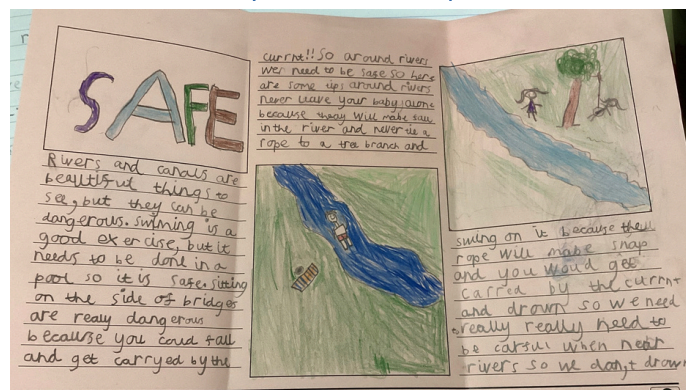 SAFE
Rivers and canals are
beautiful things to
see, but they can be
dangerous. swiming is a
good exercise, but it
needs to be done in a
pool so it is safe. sitting
on the side of bridges
are realy dangerous
because you could fall
and get carryed by the
currnt!! So around rivers
we need to be safe so here
are some tips around rivers
never leave your baby alone
because theay will make fall
in the river and never tie a
rope to a tree branch and
swing on it because the
rope will make snap
and you woud get
carred by the currnt
and drown so we need
really really need to
be carful when near
rivers so we don,t drown